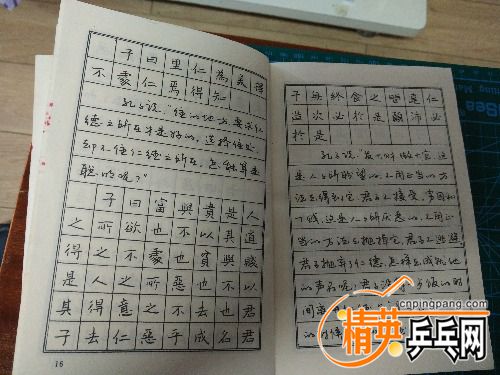 子曰里仁為美擇
不處仁焉得知
孔子说，"住的地方，要求仁
德之所在才是好的。选择住处，
却不住仁德之所在，怎能算是
聪明呢？"
子曰富與貴是人
之所欲也不以其道
得之不處也貧與賤
是人之所惡也不以
其得意之不去也君
子去仁惡乎成名君
16
子無終食之違仁
造次必於是顛沛必
於是
孔子说，"发大财，做大官，这
是人人所盼望的，不用正当的方
法去得到它，君子不接受，贫困和
下贱，这是人人所厌恶的，不用正
当的方法去抛掉它，君子不逃避。
君子抛弃了仁德，怎样去成就他
的声名呢？君子没饭的时
间
的时候
cnpingpang.com
精英乒乓网